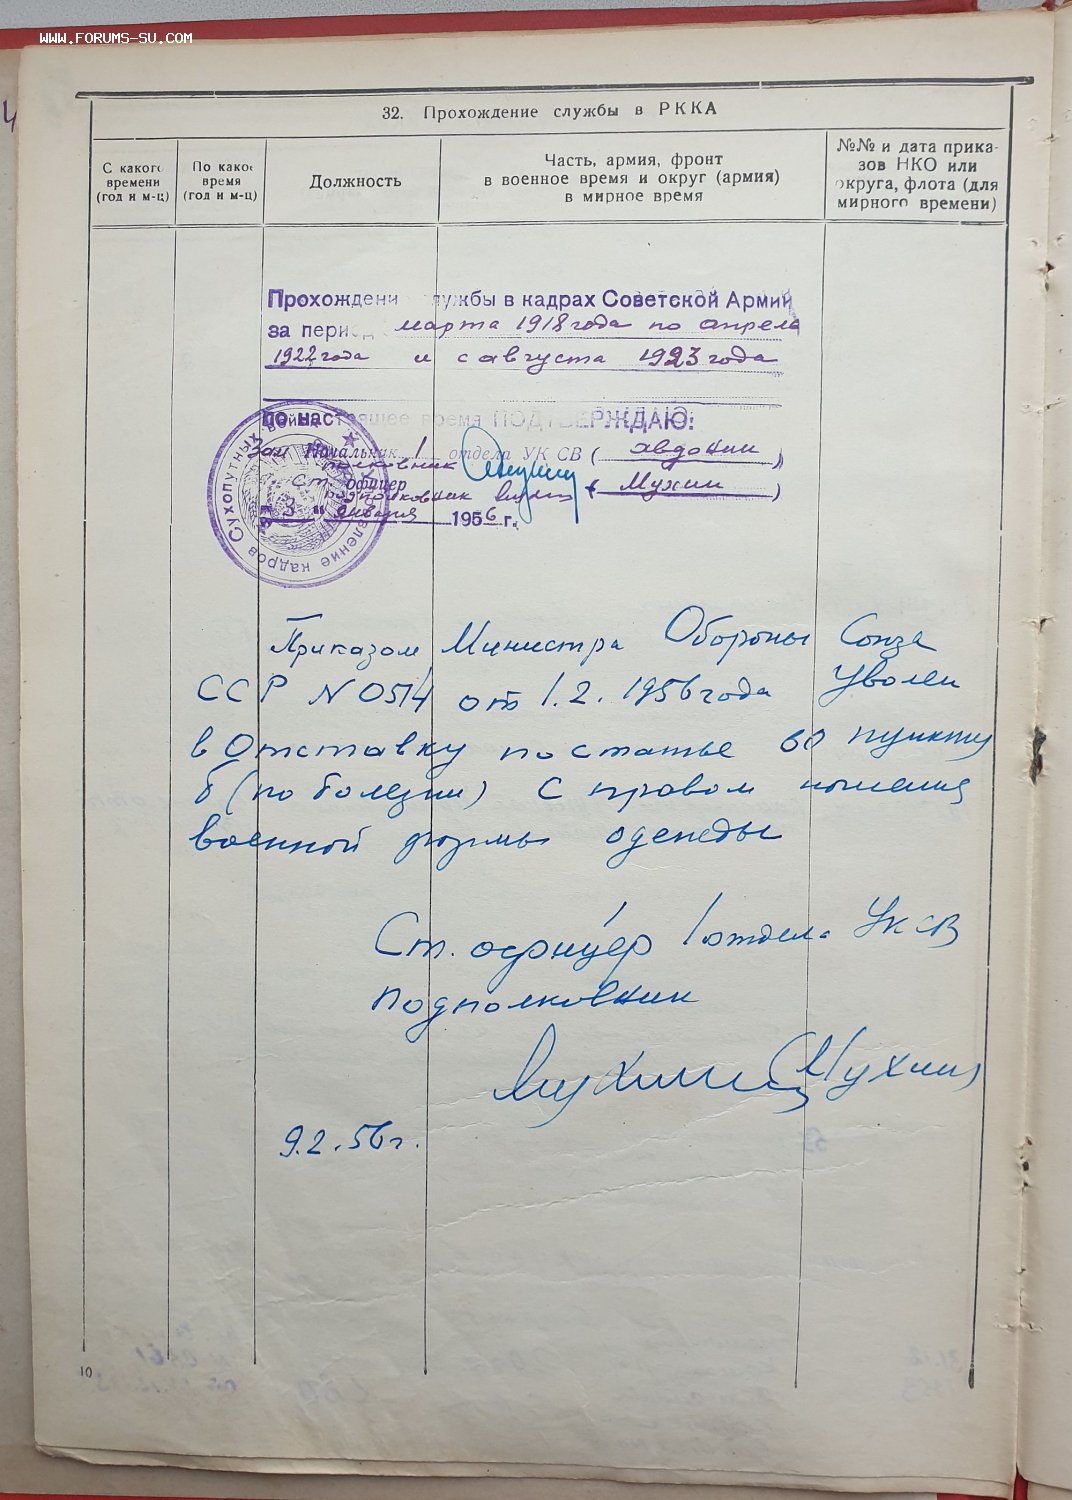 WWW.FORUMS-SU.COM
32. Прохождение службы в РККА
С какого времени (год и м-ц)
По какое время (год и м-ц)
Должность
Часть, армия, фронт
в военное время и округ (армия)
в мирное время
№№ и дата прика-
зов НКО или
округа, флота (для
мирного времени)
Прохождени службы в кадрах Советской Армии
за период марта 1918 года по апрель
1922 года и с августа 1923 года
по настоящее время ПОДТВЕРЖДАЮ:
Зам Начальник 1 отдела УК СВ ( Авдонин )
полковник
Ст. офицер
подполковник ( Мухин )
"3" января 1956 г.
Управление кадров Сухопутных Войск
Приказом Министра Обороны Союза
ССР N 0514 от 1.2.1956 года уволен
в отставку по статье 60 пункту
б (по болезни) с правом ношения
военной формы одежды
Ст. офицер 1 отдела УК СВ
подполковник
Мухин
9.2.56 г.
10